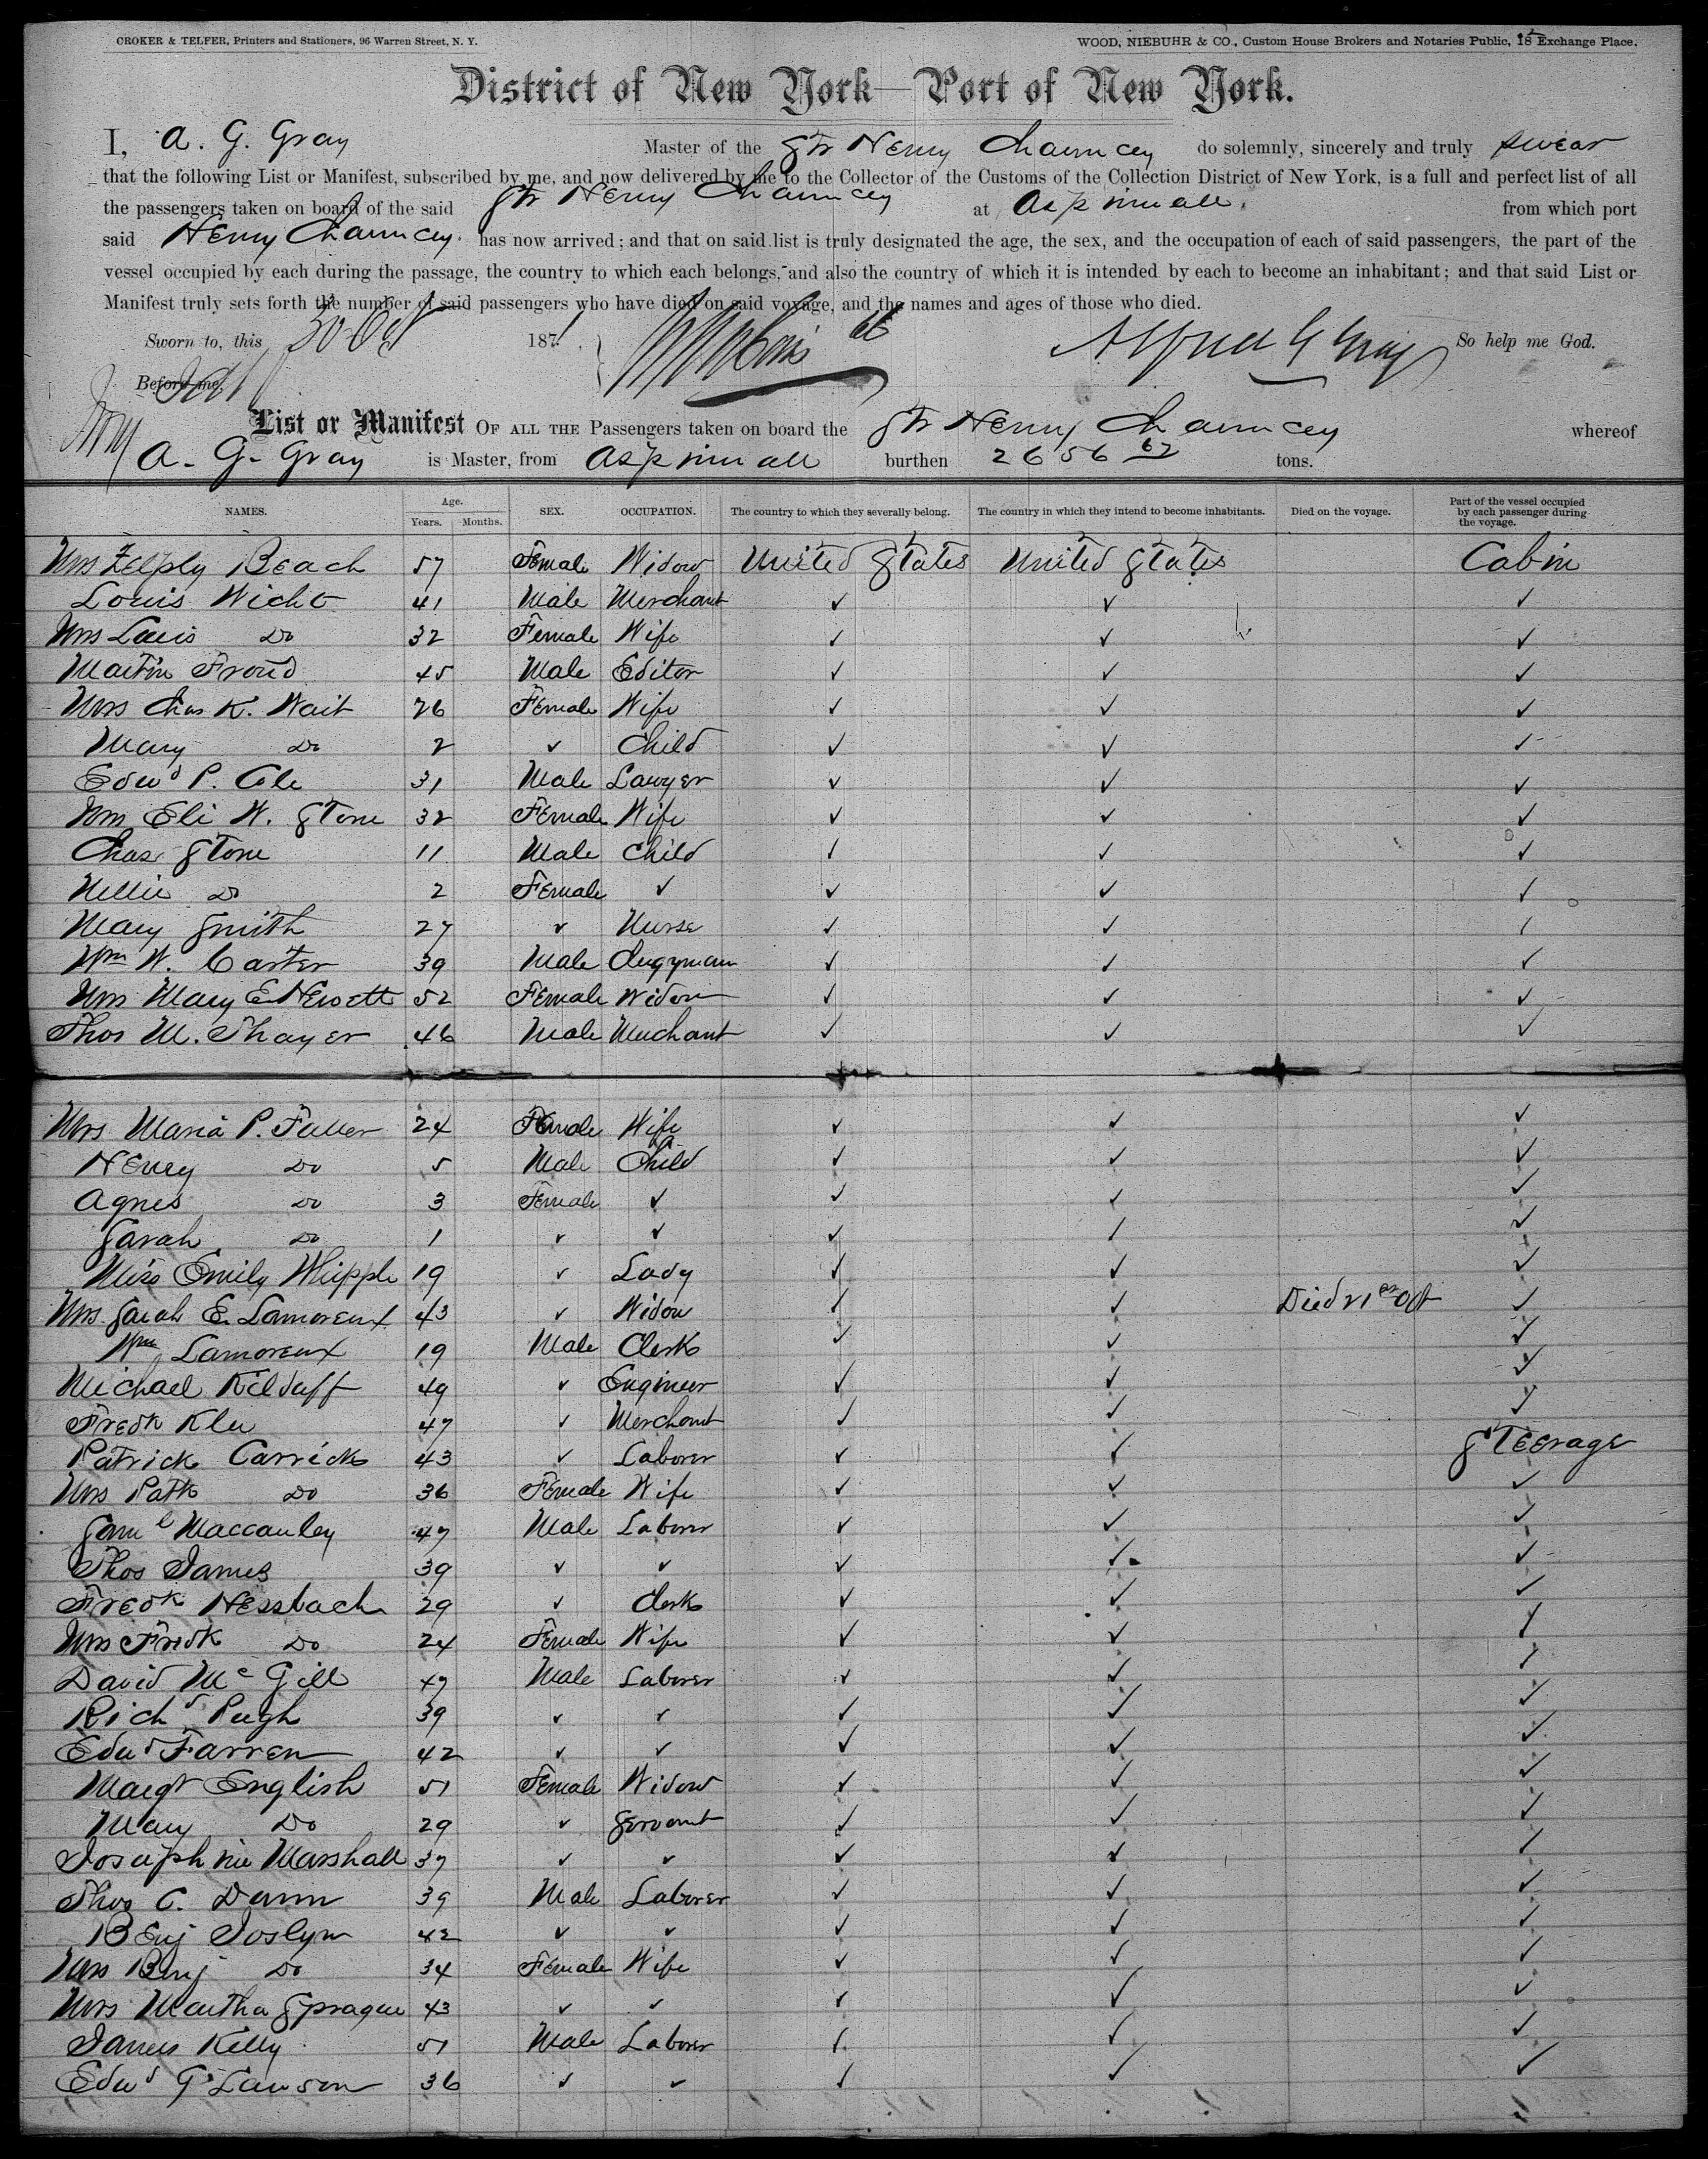 CROKER & TELFER, Printers and Stationers, 96 Warren Street, N. Y.
WOOD, NIEBUHR & CO., Custom House Brokers and Notaries Public, 18 Exchange Place.
District of New York—Port of New York.
I, A. G. Gray Master of the Str Henry Chauncey do solemnly, sincerely and truly swear
that the following List or Manifest, subscribed by me, and now delivered by me to the Collector of the Customs of the Collection District of New York, is a full and perfect list of all
the passengers taken on board of the said Str Henry Chauncey at Aspinwall from which port
said Henry Chauncey has now arrived; and that on said list is truly designated the age, the sex, and the occupation of each of said passengers, the part of the
vessel occupied by each during the passage, the country to which each belongs, and also the country of which it is intended by each to become an inhabitant; and that said List or
Manifest truly sets forth the number of said passengers who have died on said voyage, and the names and ages of those who died.
Sworn to, this 30 Oct 1871 Alfred G Gray So help me God.
Before me,
List or Manifest OF ALL THE Passengers taken on board the Str Henry Chauncey whereof
A. G. Gray is Master, from Aspinwall burthen 2656 62 tons.
NAMES. Age. Years. Months. SEX. OCCUPATION. The country to which they severally belong. The country in which they intend to become inhabitants. Died on the voyage. Part of the vessel occupied by each passenger during the voyage.
Mrs Beach 57 Female Widow United States United States Cabin
Louis Wicht 41 Male Merchant ✓ ✓ ✓
Mrs Louis Do 32 Female Wife ✓ ✓ ✓
Martin Froud 45 Male Editor ✓ ✓ ✓
Mrs Chas K. Wait 26 Female Wife ✓ ✓ ✓
Mary Do 2 ✓ Child ✓ ✓ ✓
Edwd P. Cole 31 Male Lawyer ✓ ✓ ✓
Mrs Eli W. Stone 32 Female Wife ✓ ✓ ✓
Chas Stone 11 Male Child ✓ ✓ ✓
Nellie Do 2 Female ✓ ✓ ✓ ✓
Mary Smith 27 ✓ Nurse ✓ ✓ ✓
Wm W. Carter 39 Male Clergyman ✓ ✓ ✓
Mrs Mary E 52 Female Widow ✓ ✓ ✓
Thos M. Thayer 46 Male Merchant ✓ ✓ ✓
Mrs Maria P. Fuller 24 Female Wife ✓ ✓ ✓
Henry Do 5 Male Child ✓ ✓ ✓
Agnes Do 3 Female ✓ ✓ ✓ ✓
Sarah Do 1 ✓ ✓ ✓ ✓ ✓
Miss Emily Whipple 19 ✓ Lady ✓ ✓ ✓
Mrs Sarah E. Lamoreux 43 ✓ Widow ✓ ✓ Died 21st Oct ✓
Wm Lamoreux 19 Male Clerk ✓ ✓ ✓
Michael Kilduff 49 ✓ Engineer ✓ ✓ ✓
Fredk Klee 47 ✓ Merchant ✓ ✓ ✓
Patrick Carrick 43 ✓ Laborer ✓ ✓ Steerage
Mrs Patk Do 36 Female Wife ✓ ✓ ✓
Saml Maccauley 47 Male Laborer ✓ ✓ ✓
Thos James 39 ✓ ✓ ✓ ✓ ✓
Fredk Hessbach 29 ✓ Clerk ✓ ✓ ✓
Mrs Fredk Do 24 Female Wife ✓ ✓ ✓
David McGill 47 Male Laborer ✓ ✓ ✓
Richd Pugh 39 ✓ ✓ ✓ ✓ ✓
Edwd Farren 42 ✓ ✓ ✓ ✓ ✓
Margt English 51 Female Widow ✓ ✓ ✓
Mary Do 29 ✓ Servant ✓ ✓ ✓
Josephine Marshall 37 ✓ ✓ ✓ ✓ ✓
Thos C. Dunn 39 Male Laborer ✓ ✓ ✓
Benj Joslyn 42 ✓ ✓ ✓ ✓ ✓
Mrs Benj Do 34 Female Wife ✓ ✓ ✓
Mrs Martha Sprague 43 ✓ ✓ ✓ ✓ ✓
James Kelly 51 Male Laborer ✓ ✓ ✓
Edwd G Lawson 36 ✓ ✓ ✓ ✓ ✓